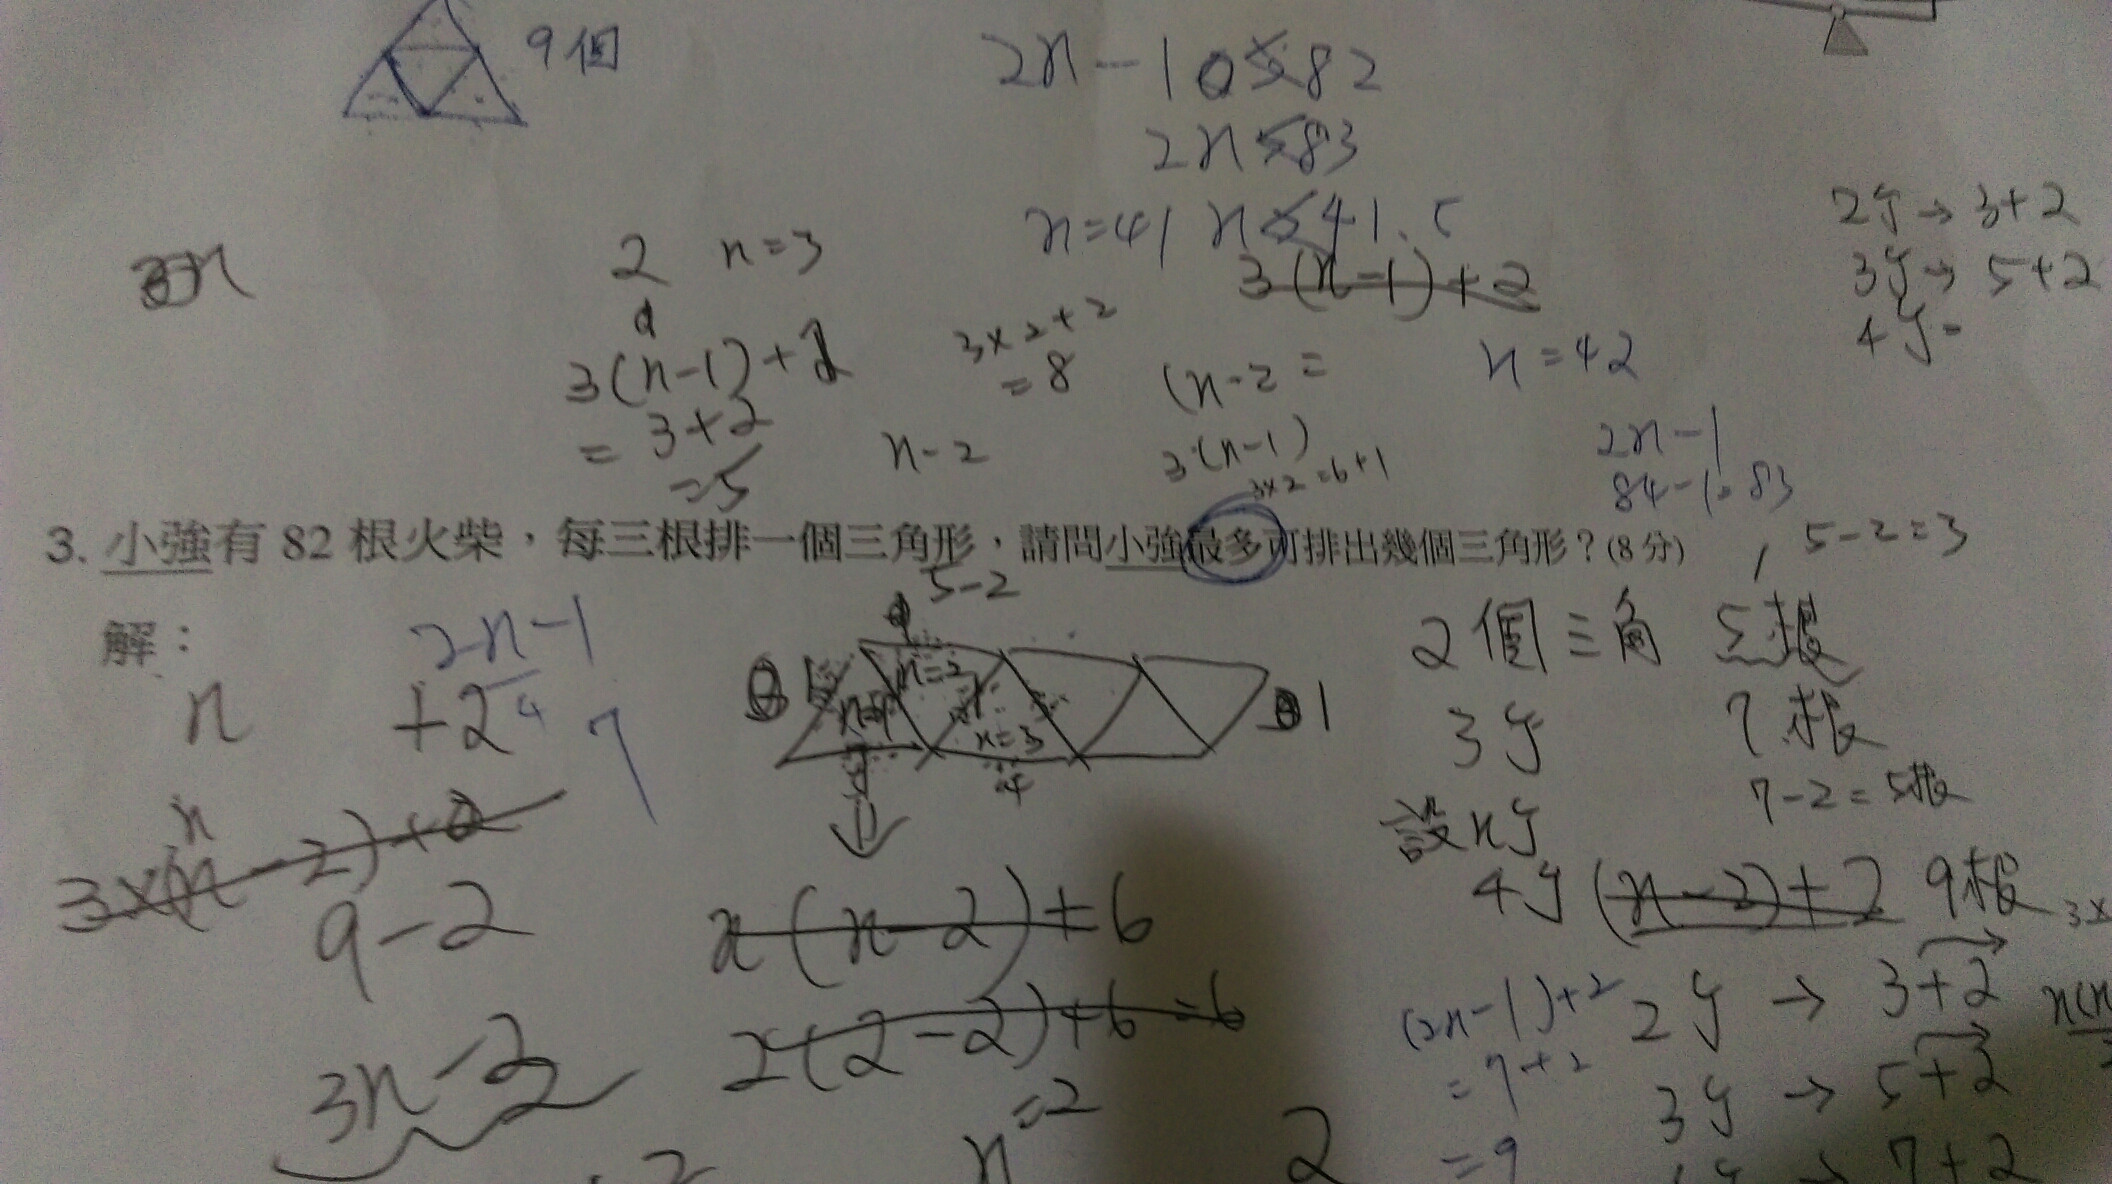 9個
2n-1≤82
2n≤83
n=41 n≤41.5
2 n=3
3(n-1)+2
3(n-1)+2
3×2+2
=8
=3+2
=5
n-2
(n-2=
3(n-1)
3×2=6+1
n=42
2n-1
84-1=83
2y→3+2
3y→5+2
4y=
3. 小強有 82 根火柴，每三根排一個三角形，請問小強最多可排出幾個三角形？(8 分)
5-2=3
5-2
解：
2n-1
+2
4
7
n
n=2
n=3
4
1
2個三角 5根
3y 7根
7-2=5根
設n y
4y (n-2)+2 9根
3×(n-2)+2
9-2
3n-2
n(n-2)+6
2(2-2)+6=6
=2
n
2
(2n-1)+2
=7+2
=9
2y → 3+2
3y → 5+2
7+2